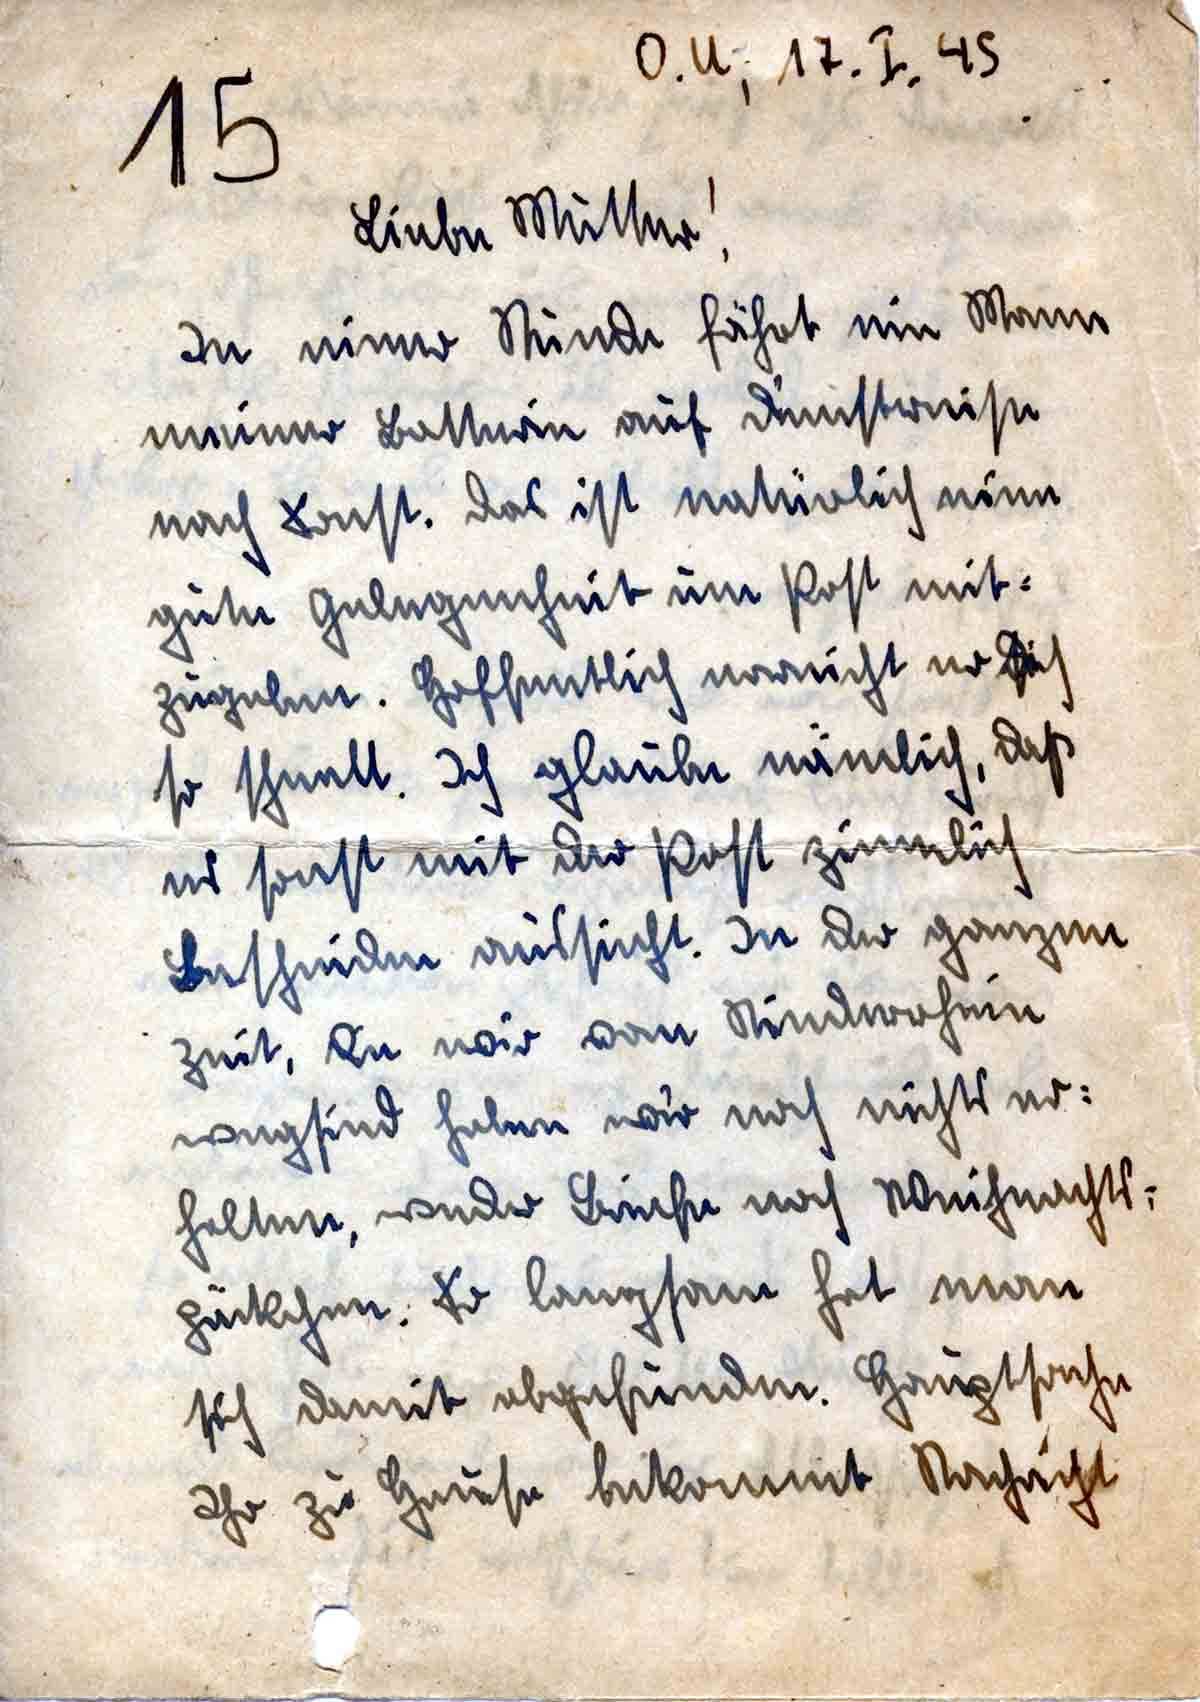 O.U., 17.I.45
15
Liebe Mutter!
In einer Stunde fährt ein Mann
meiner Batterie auf Dienstreise
nach Soest. Das ist natürlich eine
gute Gelegenheit um Post mit=
zugeben. Hoffentlich erreicht er Dich
so schnell. Ich glaube nämlich, daß
es sonst mit der Post ziemlich
bescheiden aussieht. In der ganzen
Zeit, da wir vom Niederrhein
wegsind haben wir noch nichts er=
halten, weder Briefe noch Weihnachts=
päckchen. So langsam hat man
sich damit abgefunden. Hauptsache
Ihr zu Hause bekommt Nachricht